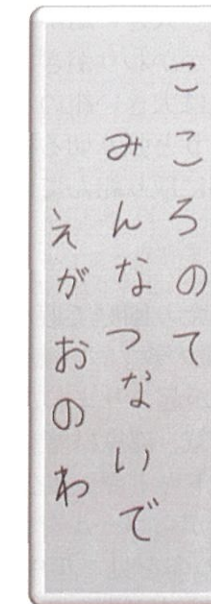 こころのて
みんなつないで
えがおのわ